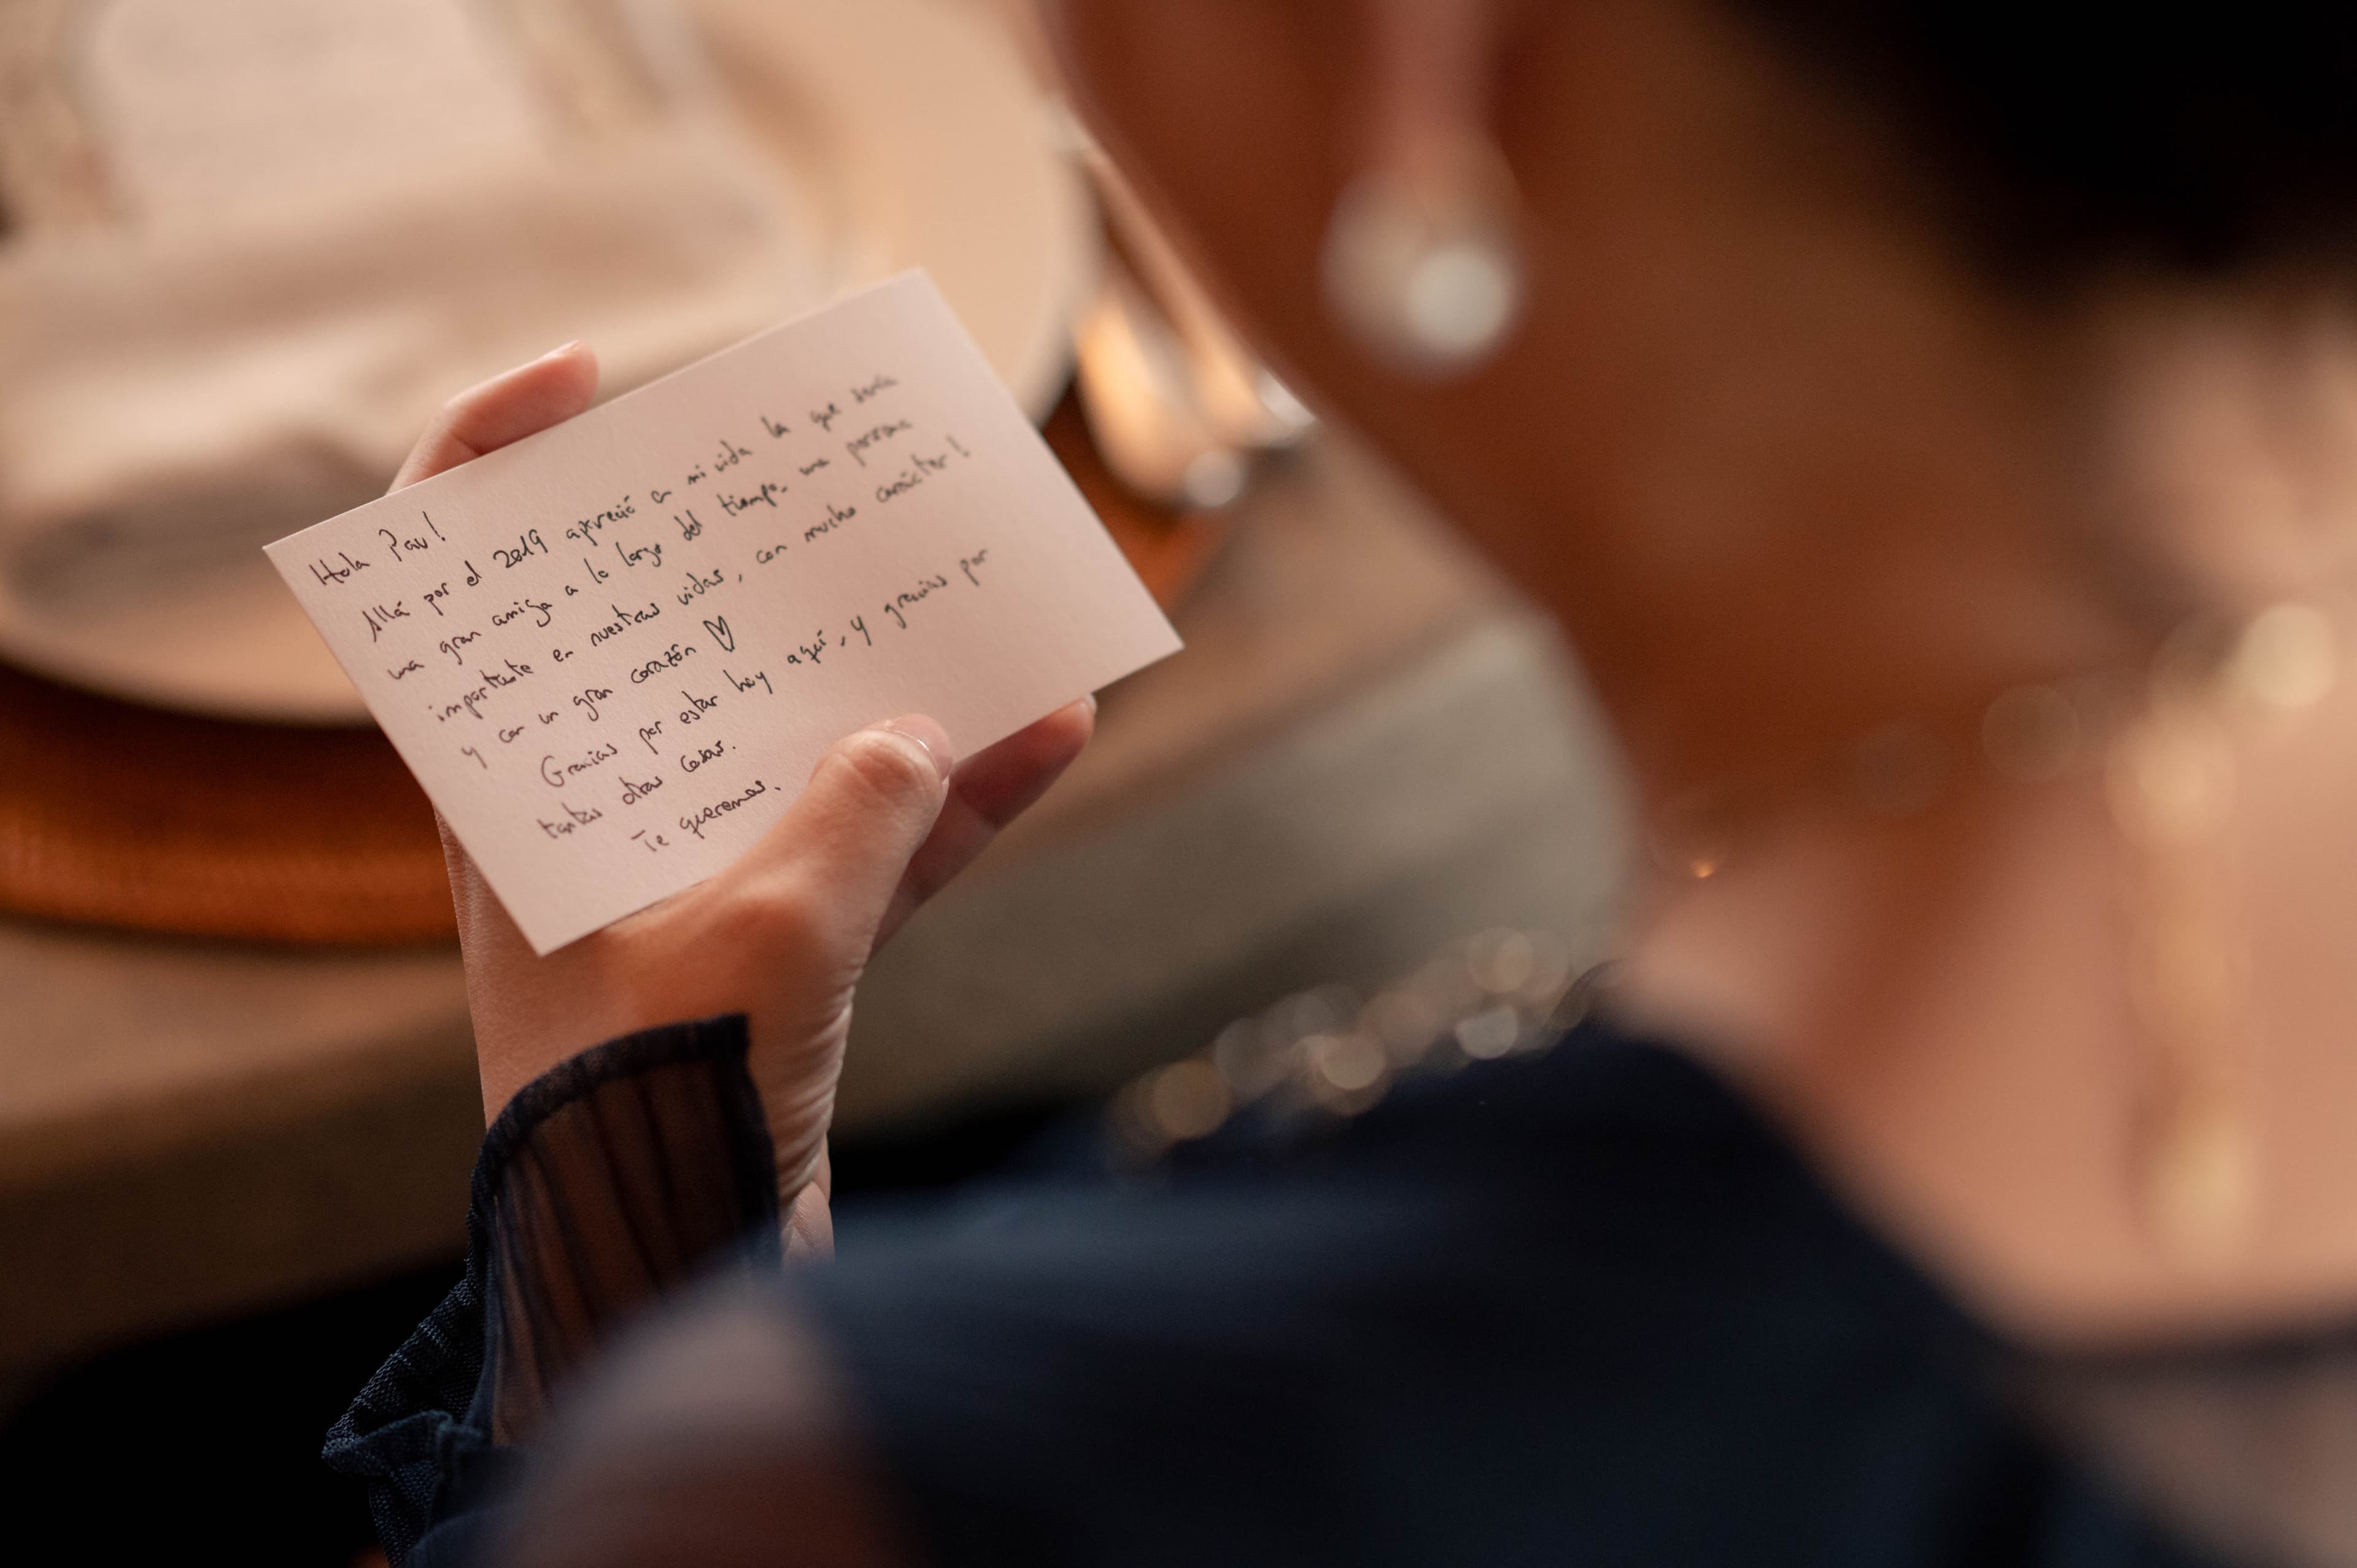 Hola Pau!
Allá por el 2019 apareció en mi vida la que sería
una gran amiga a lo largo del tiempo. una persona
importante en nuestras vidas, con mucho carácter!
y con un gran corazón ♡
Gracias por estar hoy aquí, y gracias por
tantas otras cosas.
Te queremos.